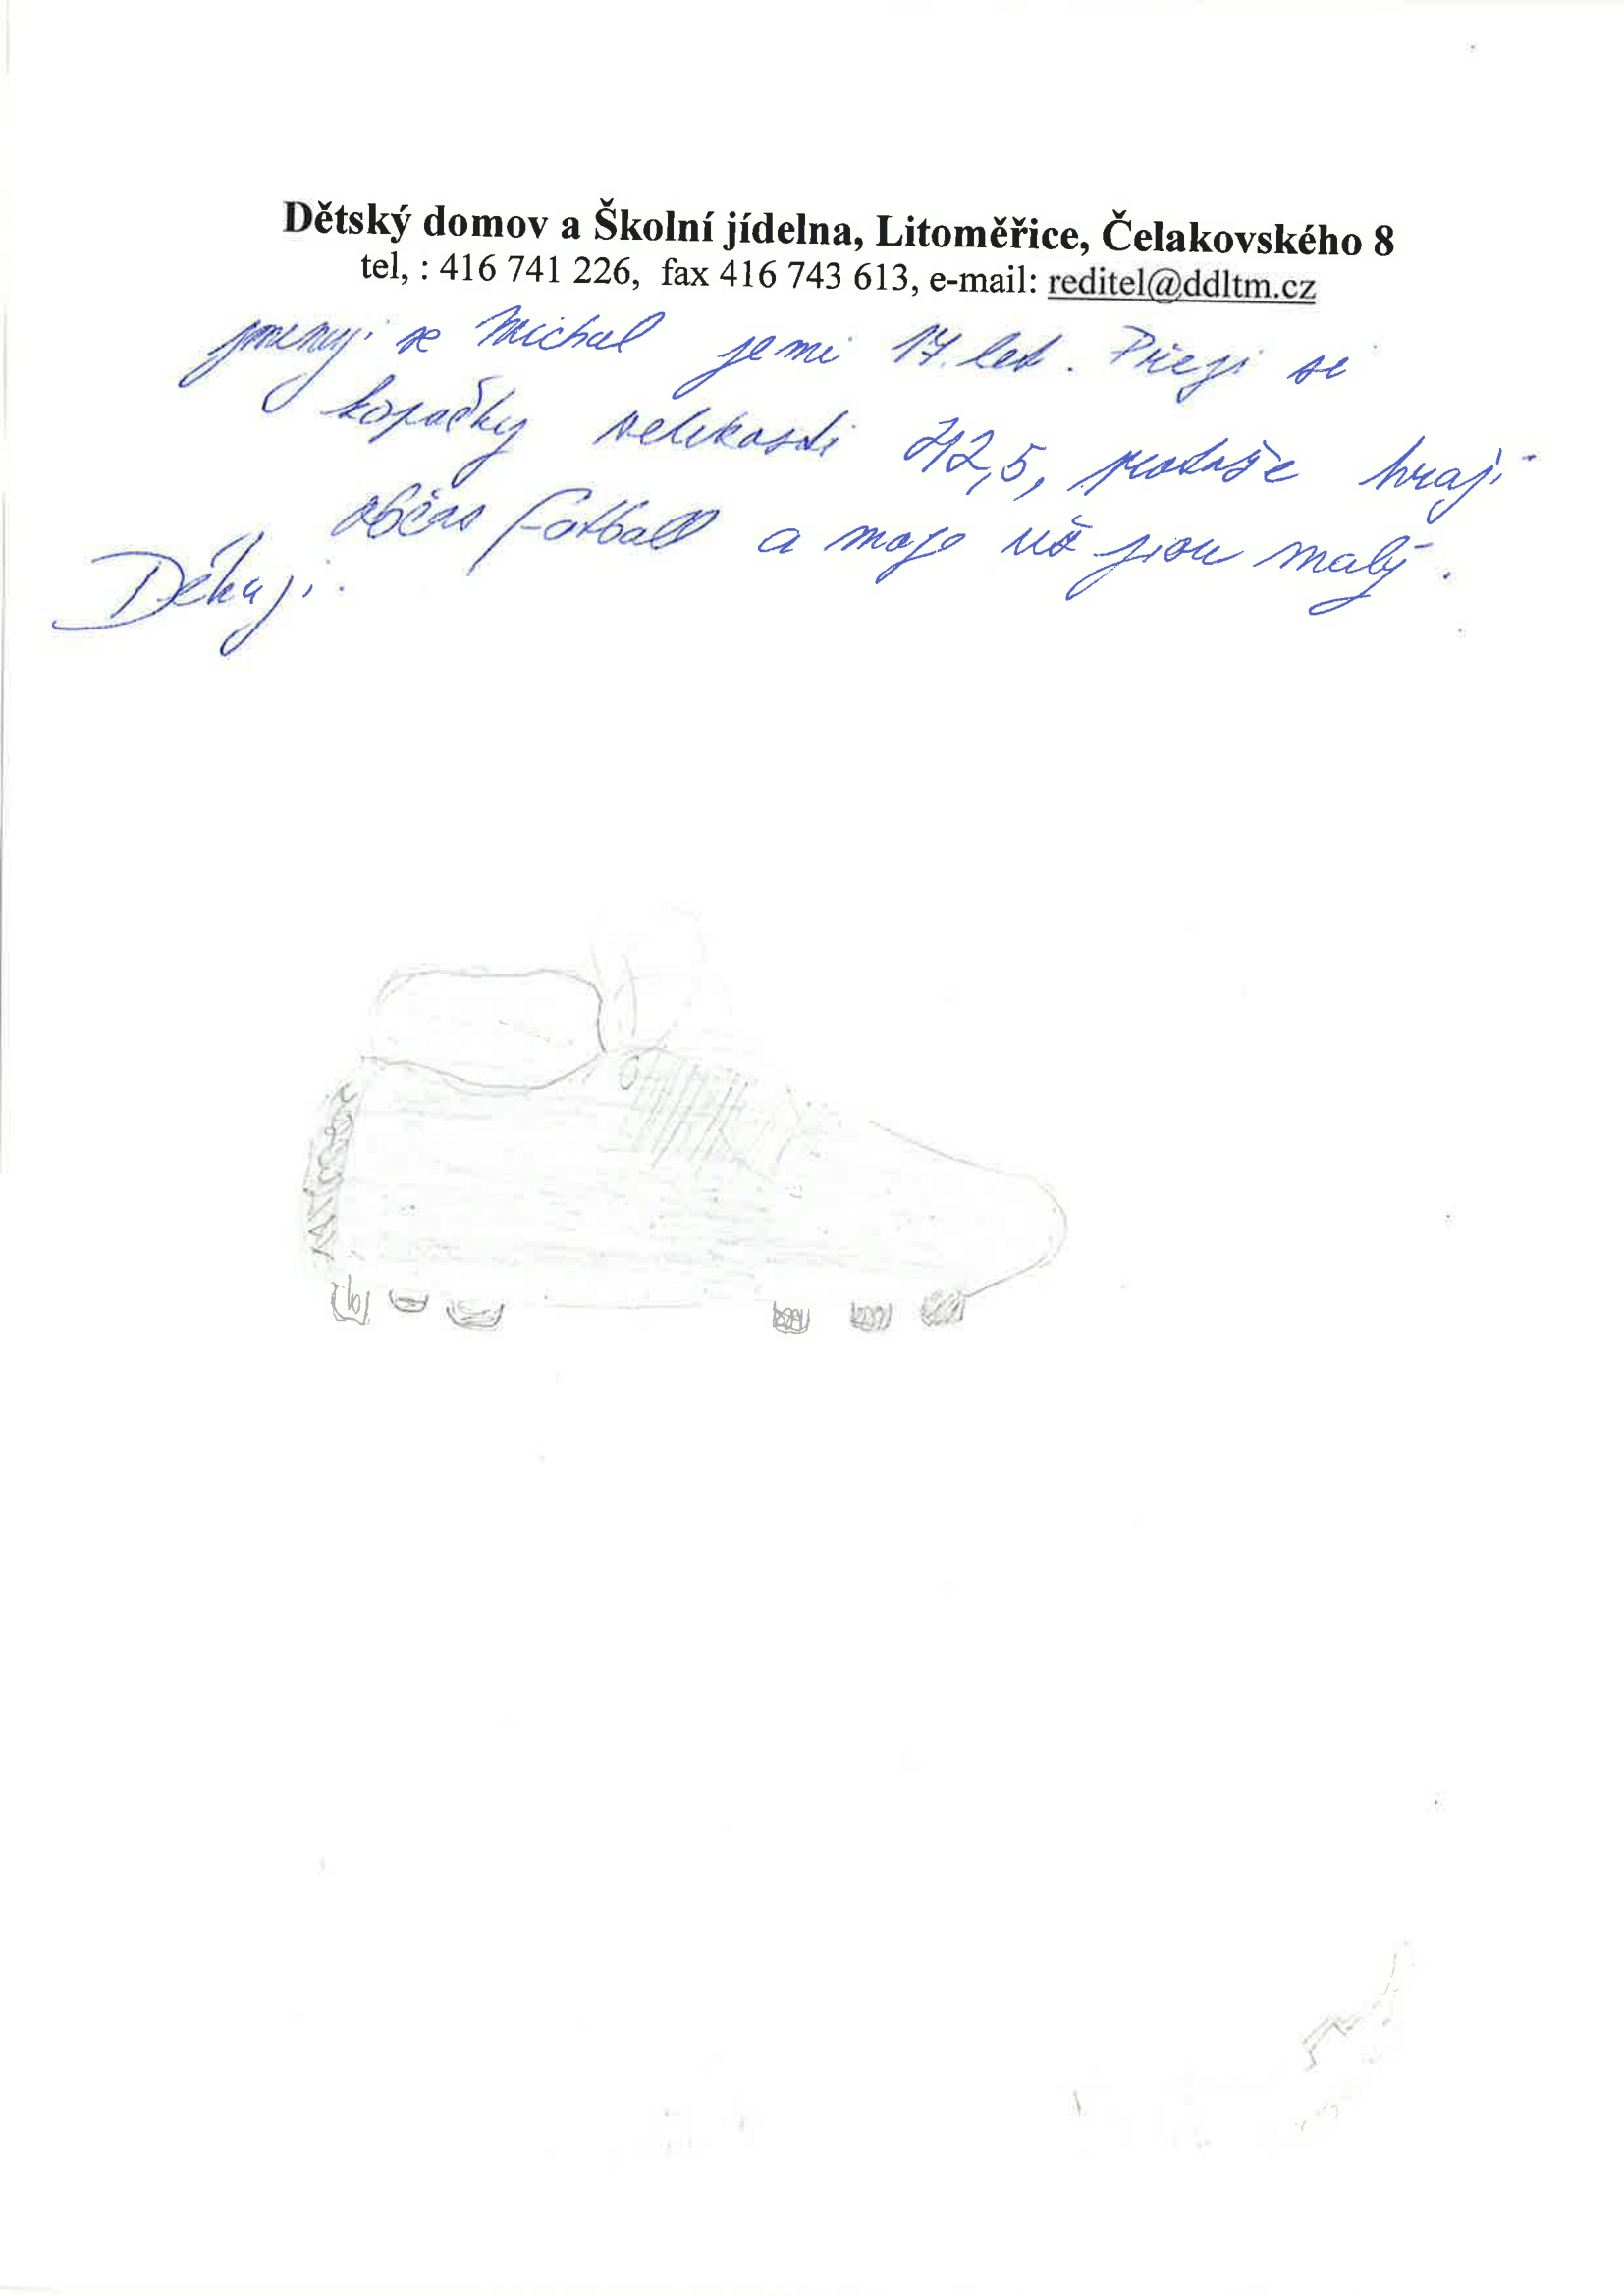 Dětský domov a Školní jídelna, Litoměřice, Čelakovského 8
tel, : 416 741 226, fax 416 743 613, e-mail: reditel@ddltm.cz
jmenuji se Michal je mi 17. let. Přeji si
kopačky velikosti 42,5, protože hraji
občas fotball a moje už jsou malý.
Děkuji.